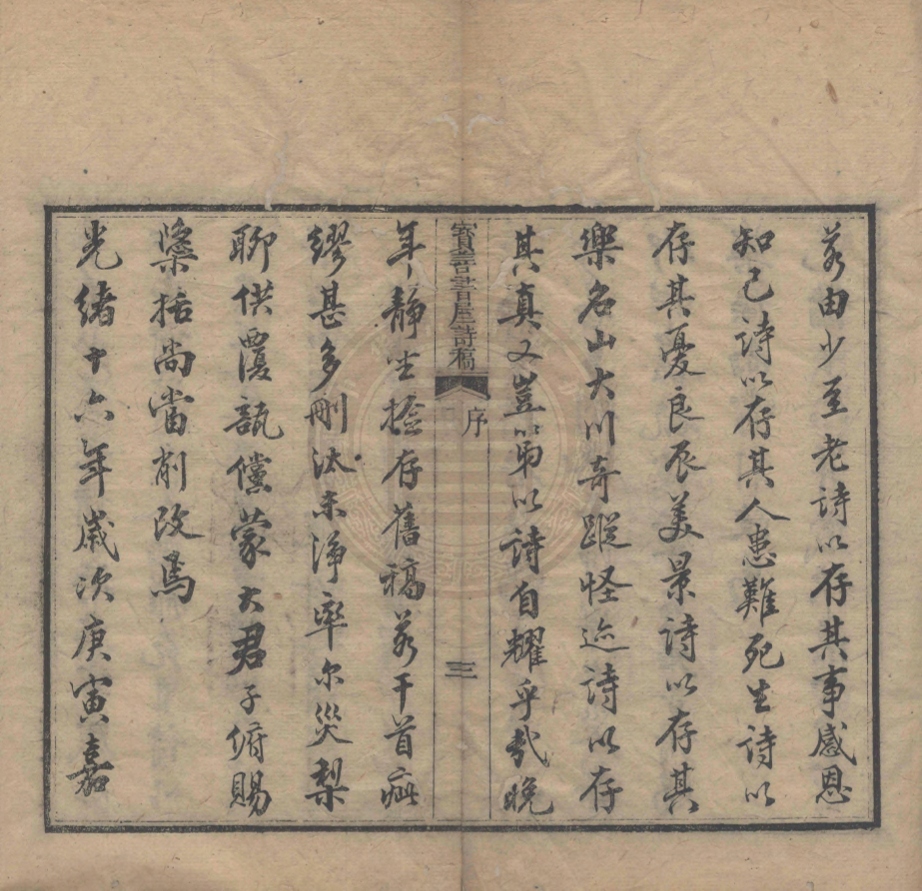 若由少至老詩以存其事感恩
知己詩以存其人患難死生詩以
存其憂良辰美景詩以存其
樂名山大川奇蹤怪迹詩以存
其真又豈第以詩自耀乎哉晚
寶善書屋詩稿 序 三
年靜坐撿存舊稿若干首疵
繆甚多刪汰未淨率尔災梨
聊供覆瓿儻蒙大君子俯賜
檃括尚當削改焉
光緒十六年歲次庚寅嘉